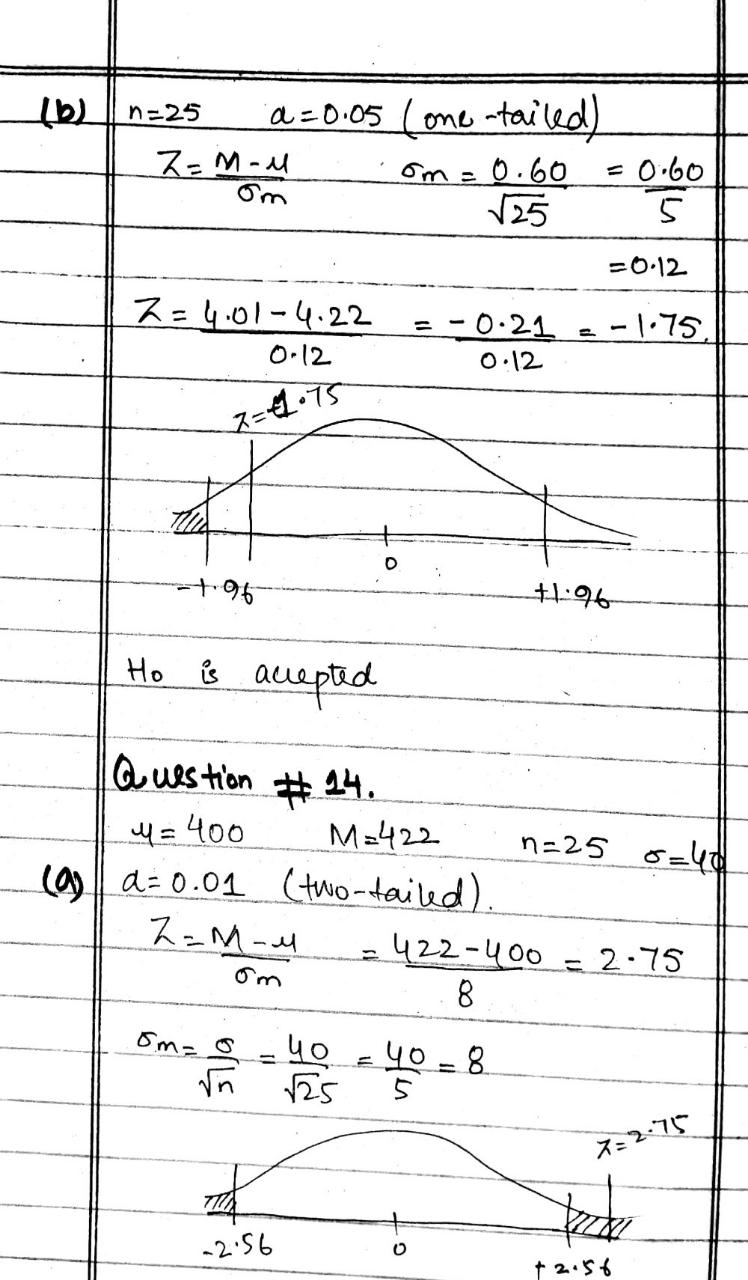 (b) n=25 a=0.05 (one-tailed)
Z = M-μ / σm    σm = 0.60 / √25 = 0.60 / 5
=0.12
Z = 4.01-4.22 / 0.12 = -0.21 / 0.12 = -1.75.
0
-1.96 +1.96
Ho is accepted
Question # 14.
μ=400 M=422 n=25 σ=40
(a) α=0.01 (two-tailed).
Z = M-μ / σm = 422-400 / 8 = 2.75
σm = σ / √n = 40 / √25 = 40 / 5 = 8
Z=2.75
-2.56 0 +2.56